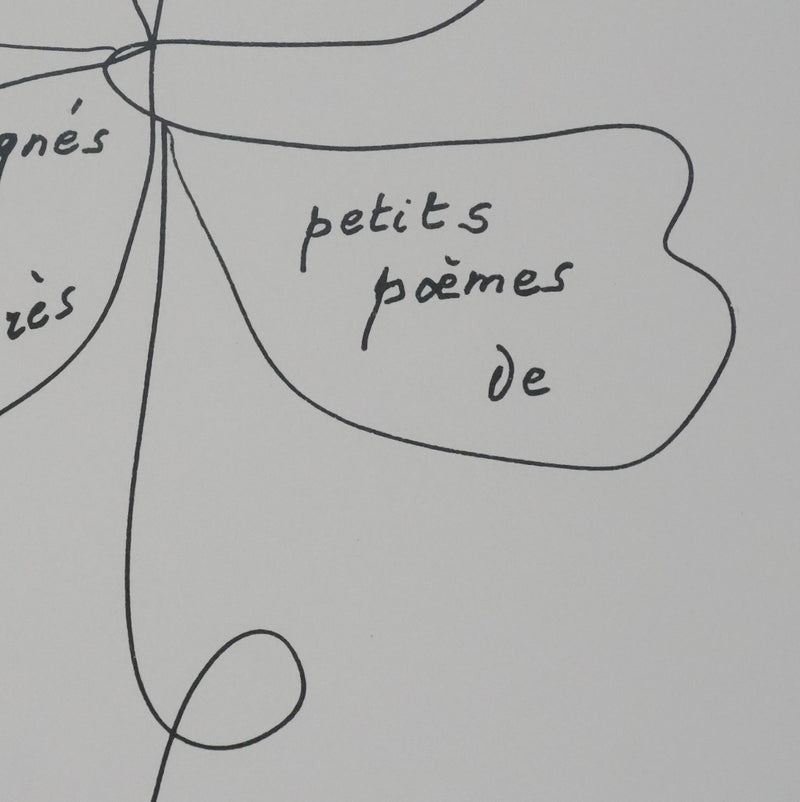 gnés
rès
petits
poèmes
de